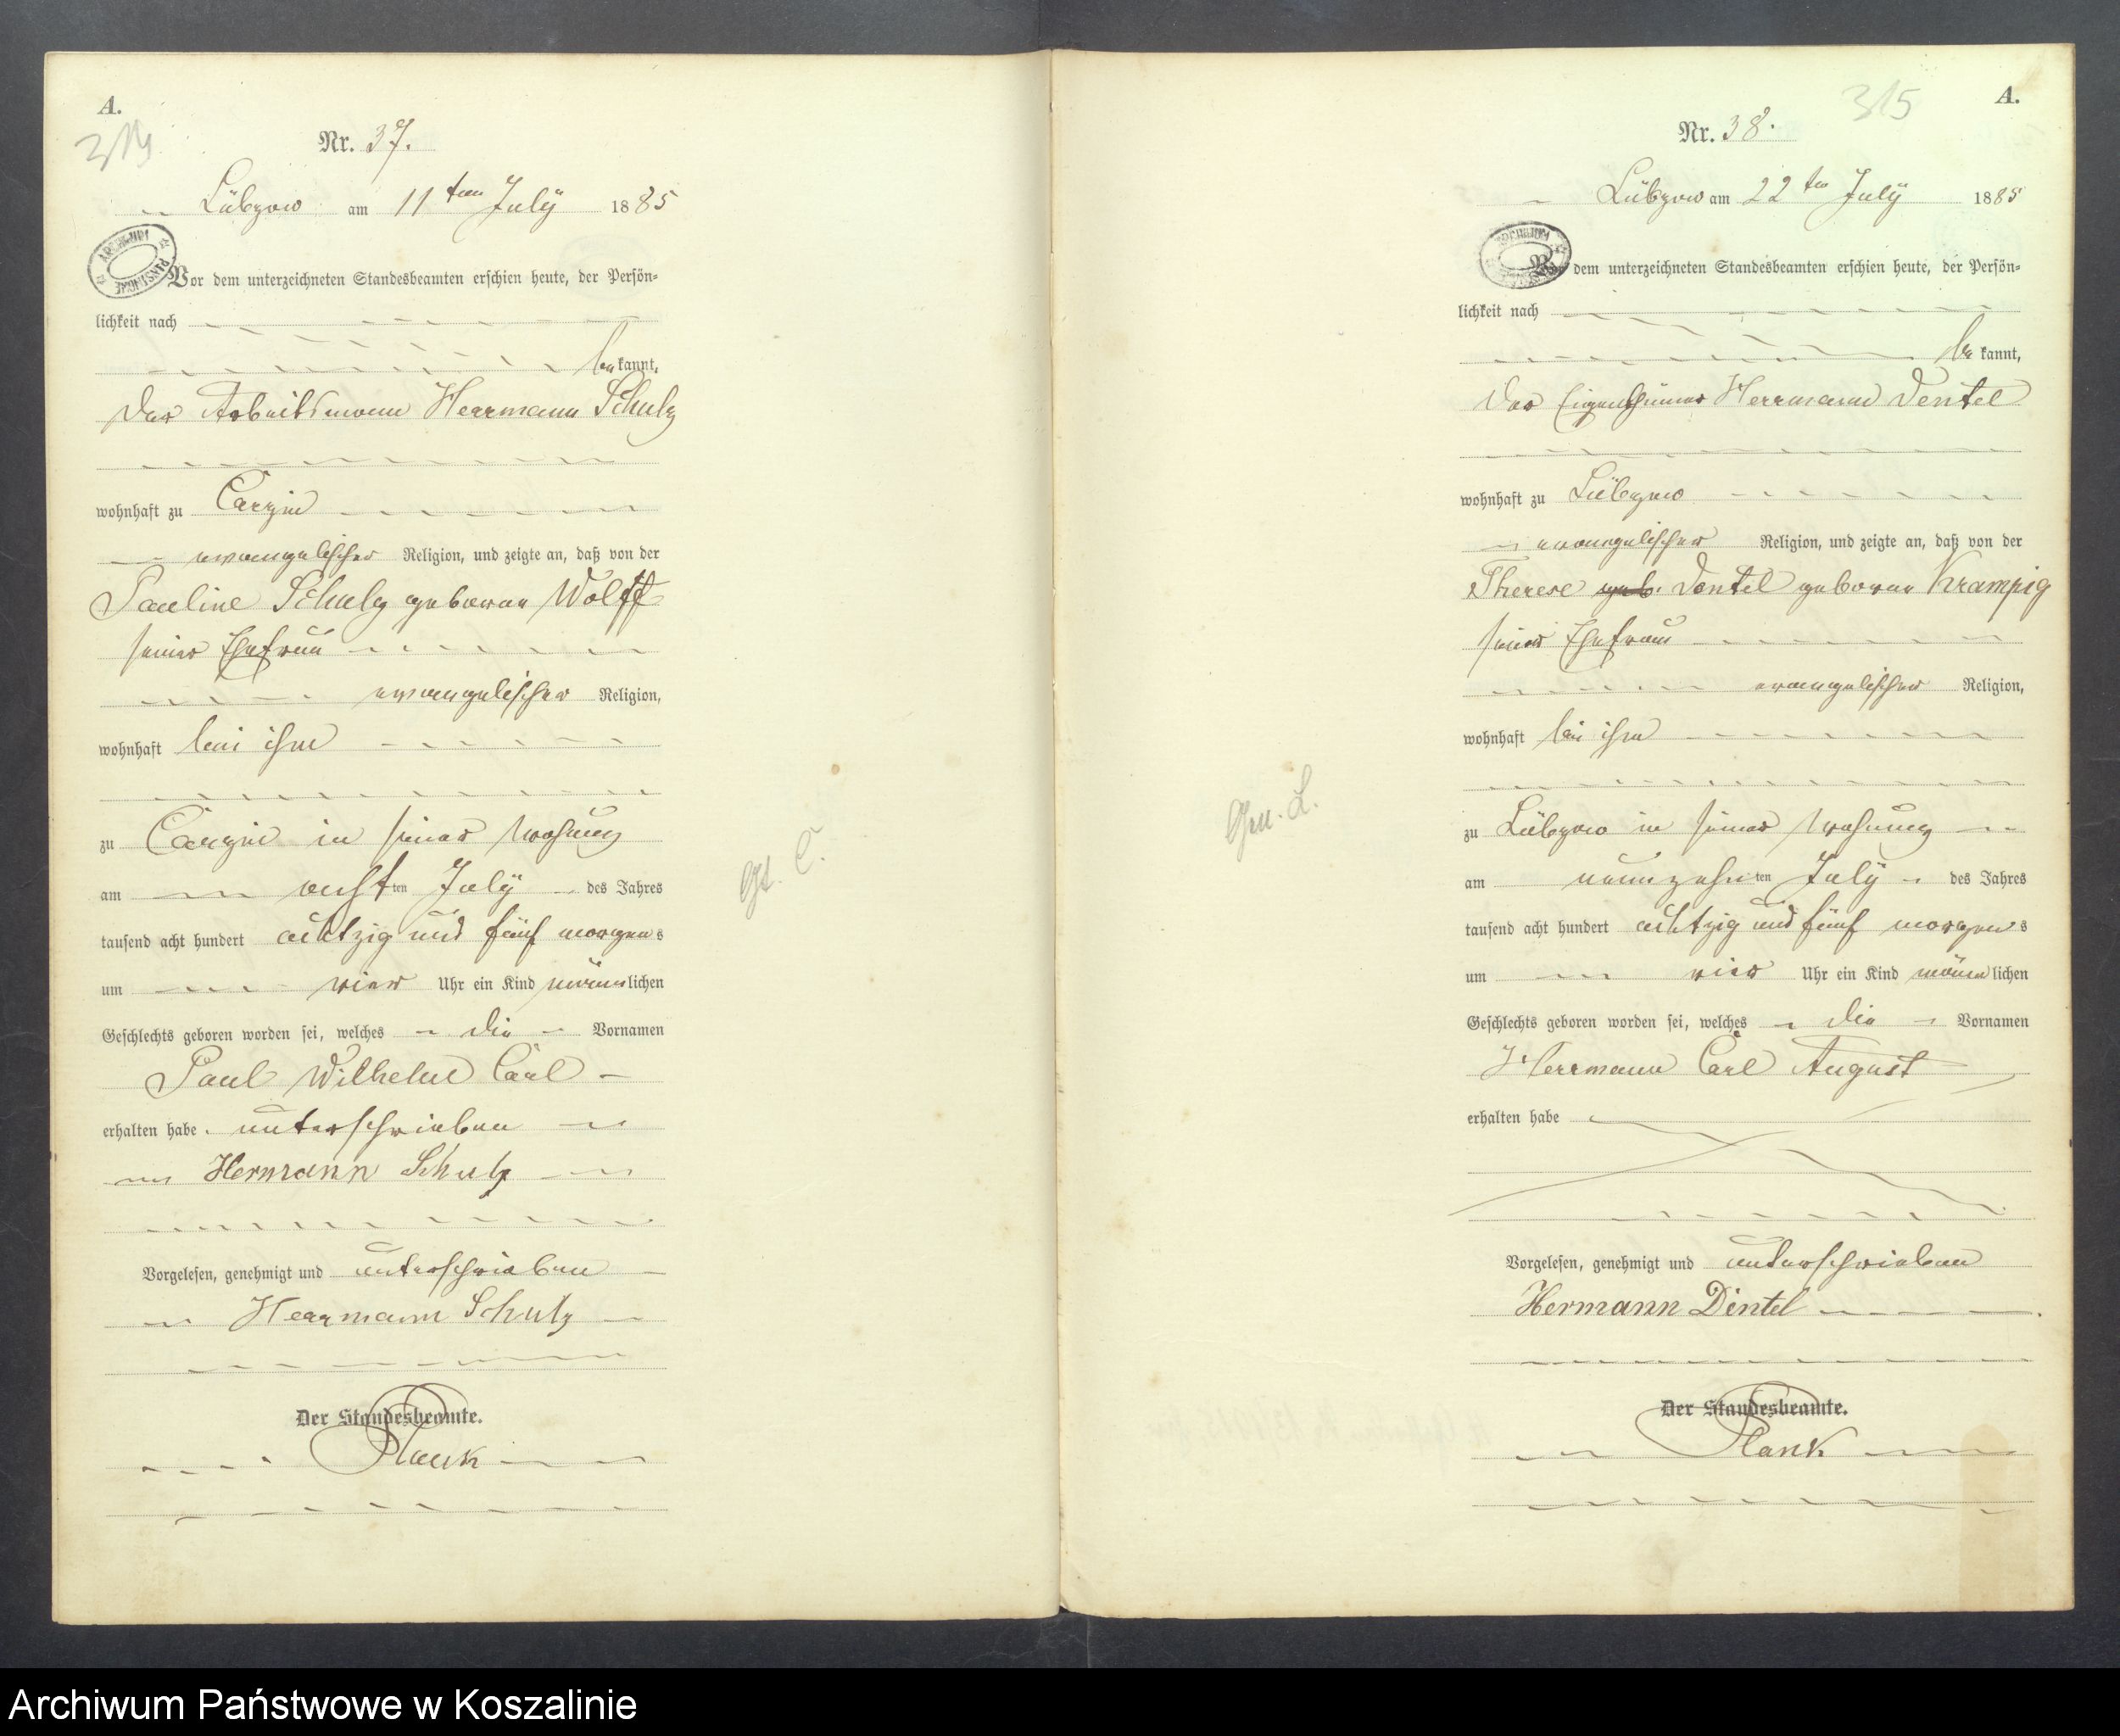 A.
314
Nr. 37.
Lübzow am 11ten July 1885
ARCHIWUM PAŃSTWOWE
Vor dem unterzeichneten Standesbeamten erschien heute, der Persön-
lichkeit nach
bekannt,
der Arbeitsmann Herrmann Schulz
wohnhaft zu Carzin
evangelischer Religion, und zeigte an, daß von der
Pauline Schulz geboren Wolff
seiner Ehefrau
evangelischer Religion,
wohnhaft bei ihm
zu Carzin in seiner Wohnung
am achtten July des Jahres
tausend acht hundert achtzig und fünf morgens
um vier Uhr ein Kind männlichen
Geschlechts geboren worden sei, welches die Vornamen
Paul Wilhelm Carl
erhalten habe. unterschrieben
Hermann Schulz
Vorgelesen, genehmigt und unterschrieben
Herrmann Schulz
Der Standesbeamte.
Plank
A.
315
Nr. 38.
Lübzow am 22ten July 1885
Vor dem unterzeichneten Standesbeamten erschien heute, der Persön-
lichkeit nach
bekannt,
der Eigenthümer Herrmann Dentel
wohnhaft zu Lübzow
evangelischer Religion, und zeigte an, daß von der
Therese geb. Dentel geboren Krampig
seiner Ehefrau
evangelischer Religion,
wohnhaft bei ihm
zu Lübzow in seiner Wohnung
am neunzehnten July des Jahres
tausend acht hundert achtzig und fünf morgens
um vier Uhr ein Kind männlichen
Geschlechts geboren worden sei, welches die Vornamen
Herrmann Carl August
erhalten habe
Vorgelesen, genehmigt und unterschrieben
Hermann Dentel
Der Standesbeamte.
Plank
Archiwum Państwowe w Koszalinie